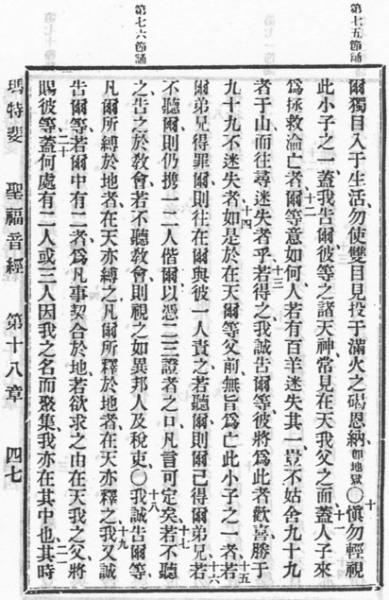 第七五節誦
第七六節誦
爾獨目入于生活勿使雙目見投于滿火之碣恩納即地獄〇十慎勿輕視
此小子之一蓋我告爾彼等之諸天神常見在天我父之面十一蓋人子來
爲拯救淪亡者十二爾等意如何人若有百羊迷失其一豈不姑舍九十九
者于山而往尋迷失者乎十三若得之我誠告爾等彼將爲此者歡喜勝于
九十九不迷失者十四如是於在天爾等父前無旨爲亡此小子之一者十五若
爾弟兄得罪爾則往在爾與彼一人責之若聽爾則爾已得爾弟兄十六若
不聽爾則仍携一二人偕爾以憑二三證者之口凡言可定矣十七若不聽
之告之於教會若不聽教會則視之如異邦人及稅吏〇十八我誠告爾等
凡爾所縛於地者在天亦縛之凡爾所釋於地者在天亦釋之十九我又誠
告爾等若爾中有二者爲凡事契合於地若欲求之由在天我之父將
賜彼等二十蓋何處有二人或三人因我之名而聚集我亦在其中也二一其時
瑪特斐 聖福音經 第十八章 四七